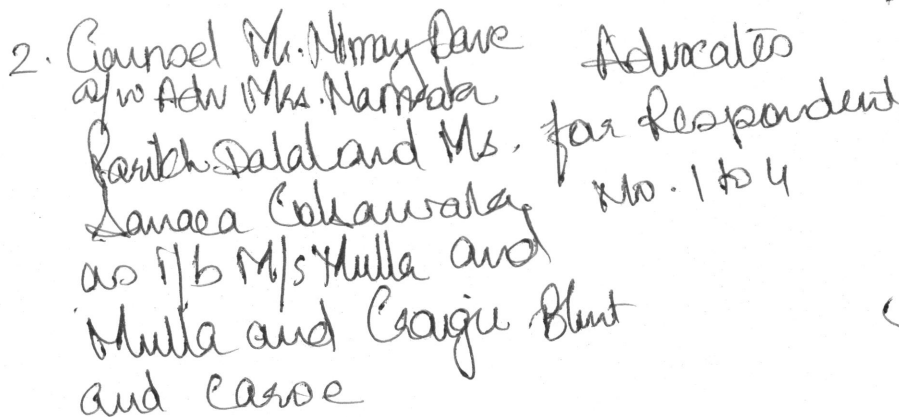 2. Counsel Mr. Nimay Dave
a/w Adv Mrs. Namrata
Parikh Dalal and Ms.
Sanaea
as i/b M/s Mulla and
Mulla and Craigie Blunt
and Caroe
Advocates
for Respondent
No. 1 to 4